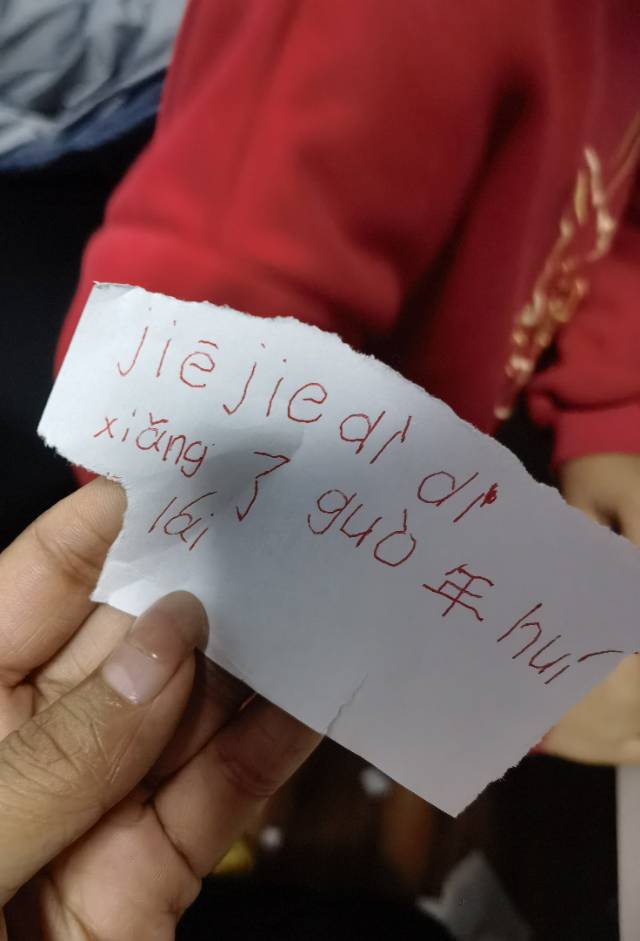 jiē jie dì di
xiǎng 了 guò 年 huí
lái